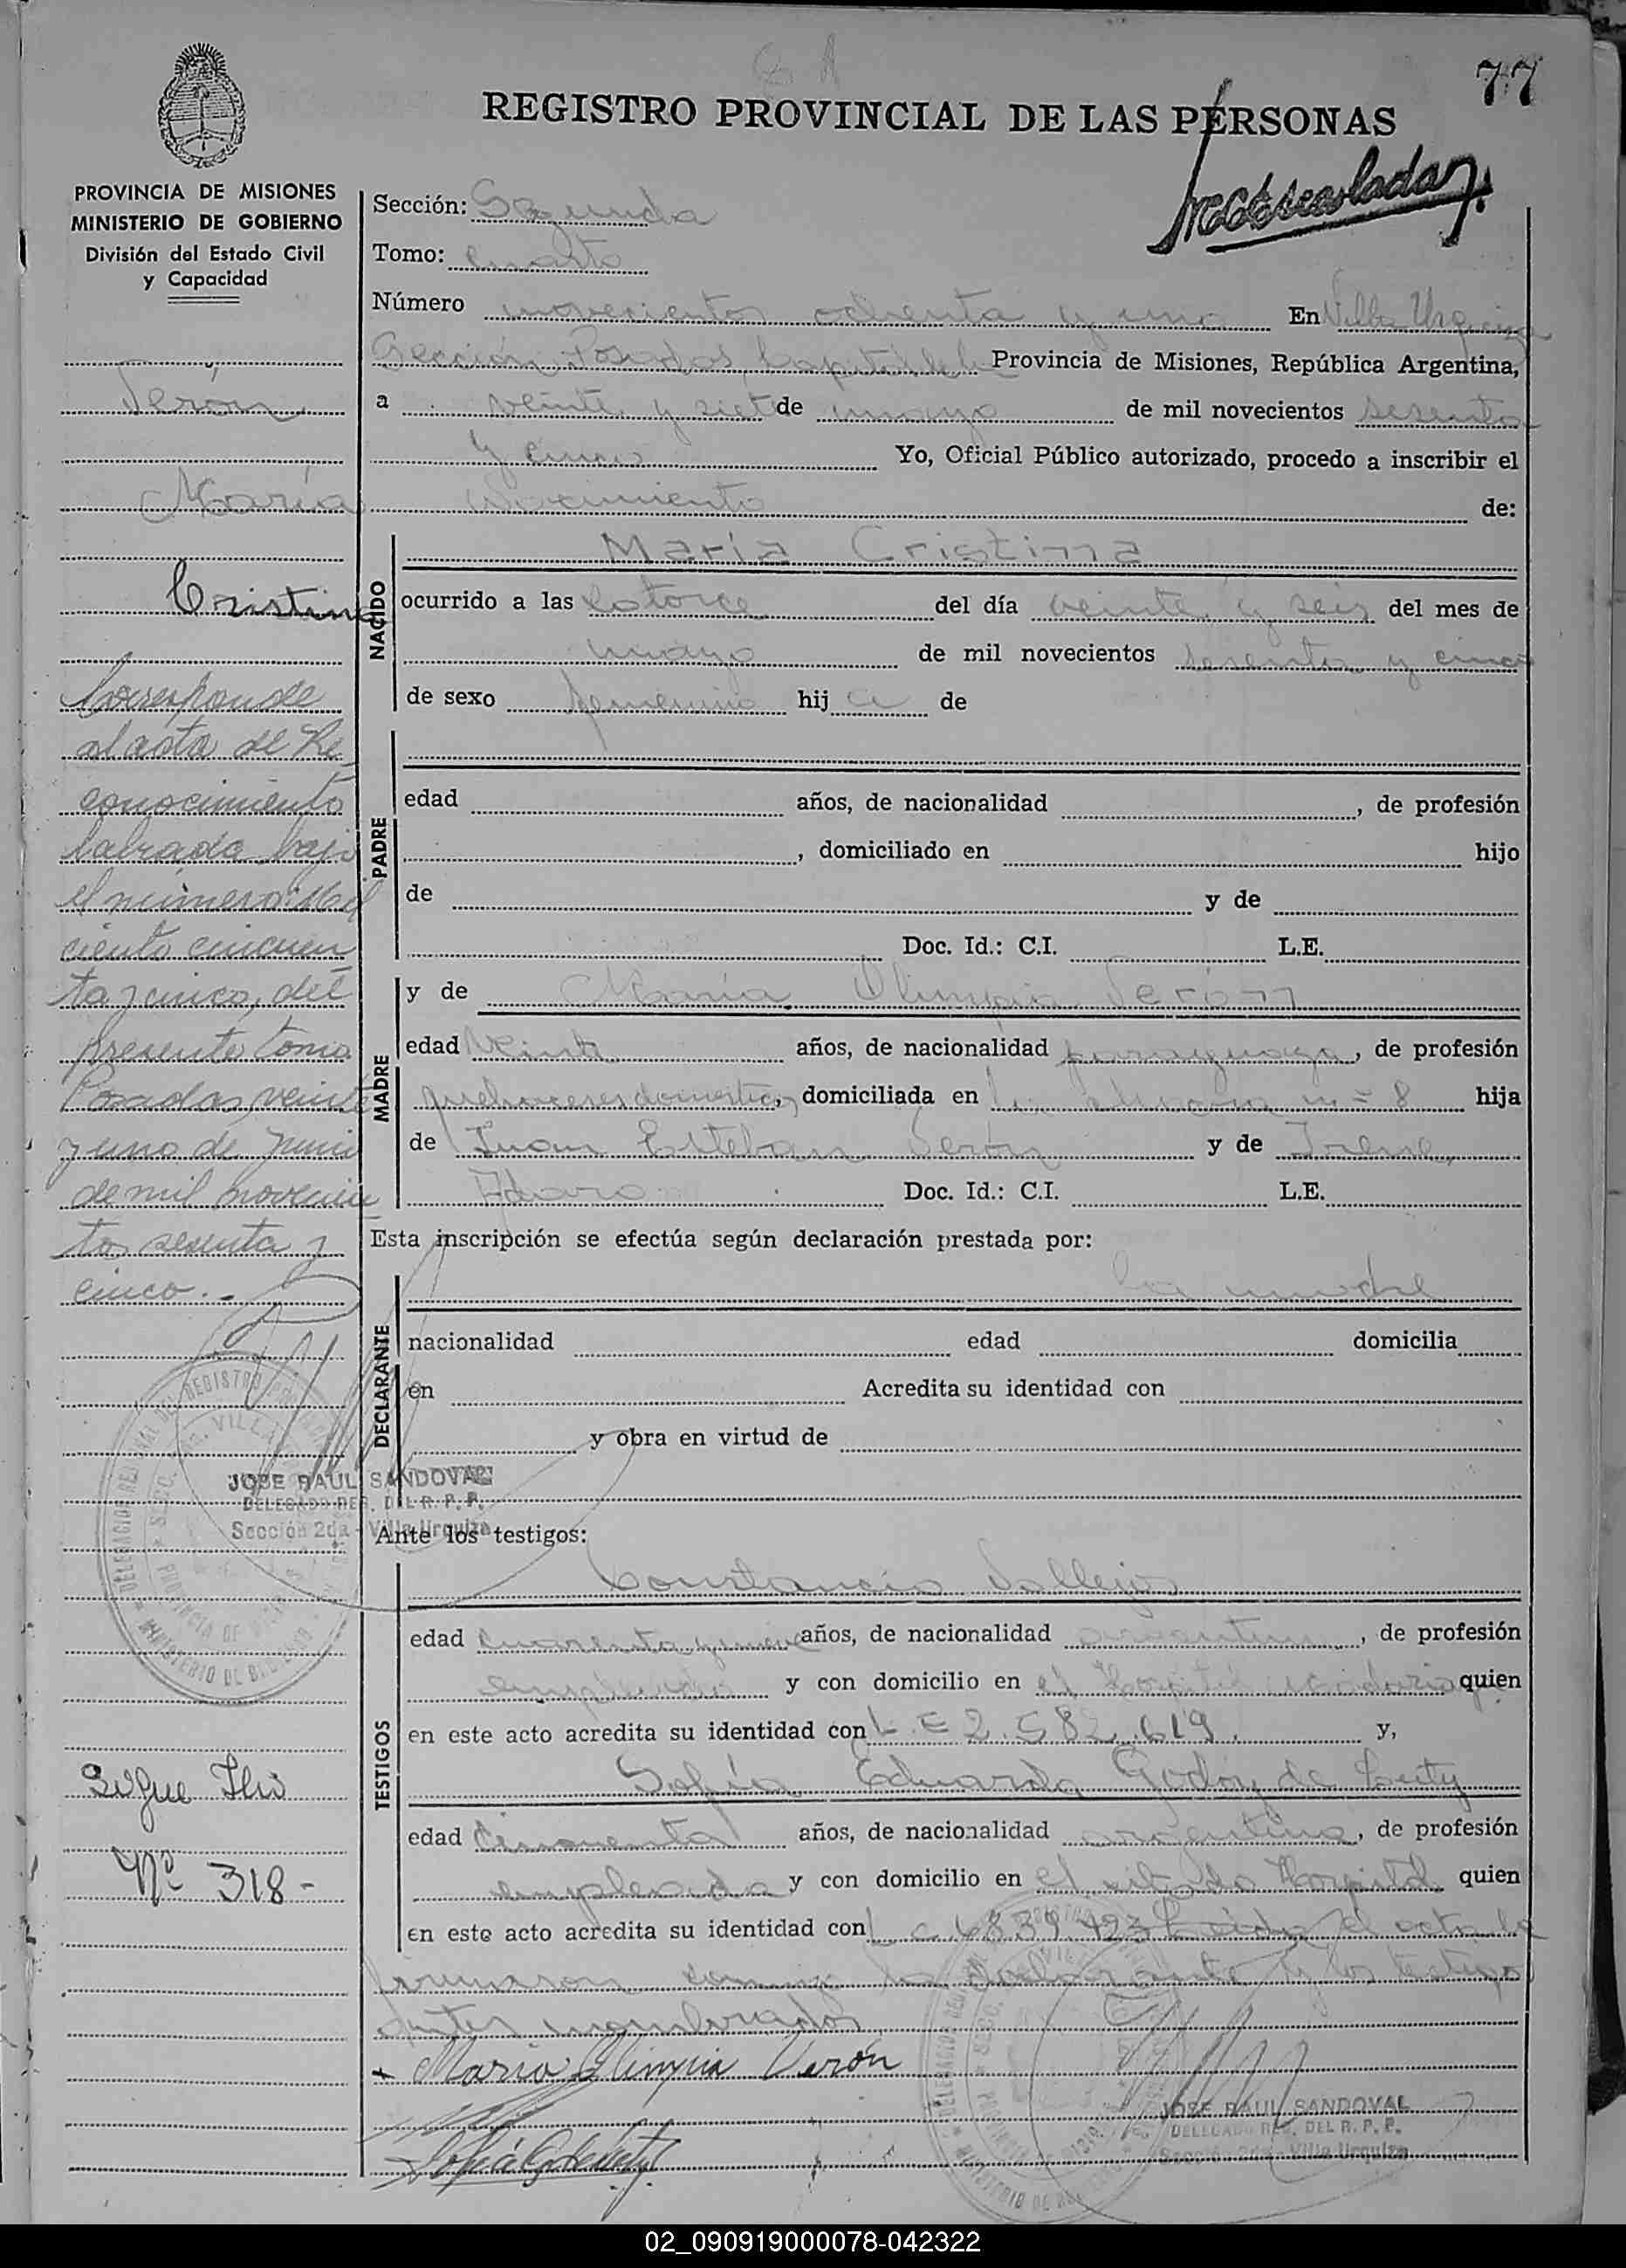 77
REGISTRO PROVINCIAL DE LAS PERSONAS
PROVINCIA DE MISIONES
MINISTERIO DE GOBIERNO
División del Estado Civil
y Capacidad
Verón
María
Cristina
Corresponde
al acta de Re
conocimiento
labrada bajo
el número: Mil
ciento cincuen
ta y cinco, del
presente tomo
Posadas, veinte
y uno de junio
de mil novecien
tos sesenta y
cinco.-
JOSE RAUL SANDOVAL
DELEGADO REG. DEL R. P. P.
Sección 2da - Villa Urquiza
Sigue
Nº 318-
Sección: Segunda
Tomo: Cuarto
Número novecientos ochenta y uno En Villa Urquiza
Sección Posadas Capital de la Provincia de Misiones, República Argentina,
a veinte y siete de mayo de mil novecientos sesenta
y cinco Yo, Oficial Público autorizado, procedo a inscribir el
Nacimiento de:
NACIDO
María Cristina
ocurrido a las Catorce del día veinte y seis del mes de
mayo de mil novecientos sesenta y cinco
de sexo femenino hij a de
PADRE
edad años, de nacionalidad , de profesión
, domiciliado en hijo
de y de
Doc. Id.: C.I. L.E.
MADRE
y de María Olimpia Verón
edad veinte años, de nacionalidad paraguaya, de profesión
quehaceres domésticos, domiciliada en nº 8 hija
de Juan Esteban Verón y de Irene
Doc. Id.: C.I. L.E.
Esta inscripción se efectúa según declaración prestada por:
DECLARANTE
la madre
nacionalidad edad domicilia
en Acredita su identidad con
y obra en virtud de
Ante los testigos:
TESTIGOS
Constancio Vallejos
edad cuarenta y nueve años, de nacionalidad argentina, de profesión
empleado y con domicilio en el Hospital Madariaga quien
en este acto acredita su identidad con L.E 2.582.619. y,
Sofía Eduarda Godoy de
edad Cincuenta años, de nacionalidad argentina, de profesión
empleada y con domicilio en el citado Hospital quien
en este acto acredita su identidad con L c 6.839.423 Leída el acta la
firmaron conmigo la declarante y los testigos
antes nombrados
María Olimpia Verón
JOSE RAUL SANDOVAL
DELEGADO REG. DEL R. P. P.
Sección 2da - Villa Urquiza
02_090919000078-042322